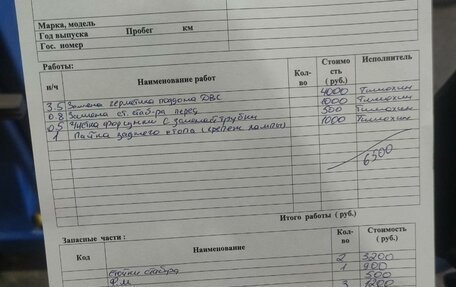 Марка, модель
Год выпуска Пробег км
Гос. номер
Работы:
н/ч Наименование работ Кол-во Стоимость ( руб.) Исполнитель
3.5 Замена герметика поддона ДВС 4000 Тимохин
0.8 Замена ст. стаб-ра перед 1000 Тимохин
0,5 Чистка форсунки с заменой трубки 500 Тимохин
1 Пайка заднего стопа (крепеж лампы) 1000 Тимохин
6500
Итого работы ( руб.)
Запасные части :
Код Наименование Кол-во Стоимость ( руб.)
стойки стаб-ра 2 3200
1 900
500
3 1200